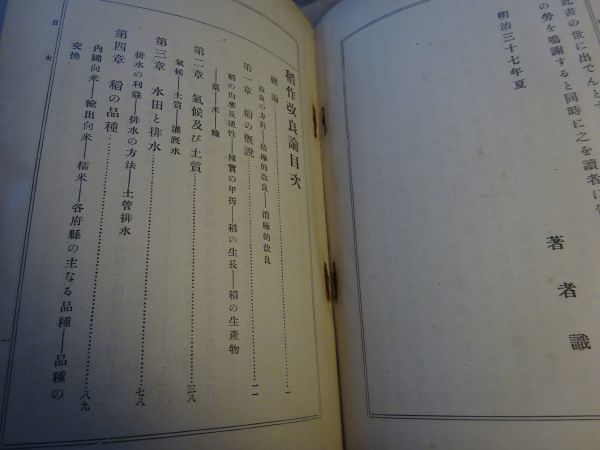 此書の世に出でんと
の勞を鳴謝すると同時に之を讀者に
明治三十七年夏
著者識
稻作改良論目次
總論‥‥‥一
改良の方針――積極的改良――消極的改良
第一章 稻の概説‥‥‥一一
稻の由來及通性――種實の甲拆――稻の生長――稻の生產物
――藁――米――糠
第二章 氣候及び土質‥‥‥三八
氣候――土質――灌漑水
第三章 水田と排水‥‥‥七八
排水の利益――排水の方法――土管排水
第四章 稻の品種‥‥‥八九
內國向米――輸出向米――糯米――各府縣の主なる品種――品種の
交換
目次
一